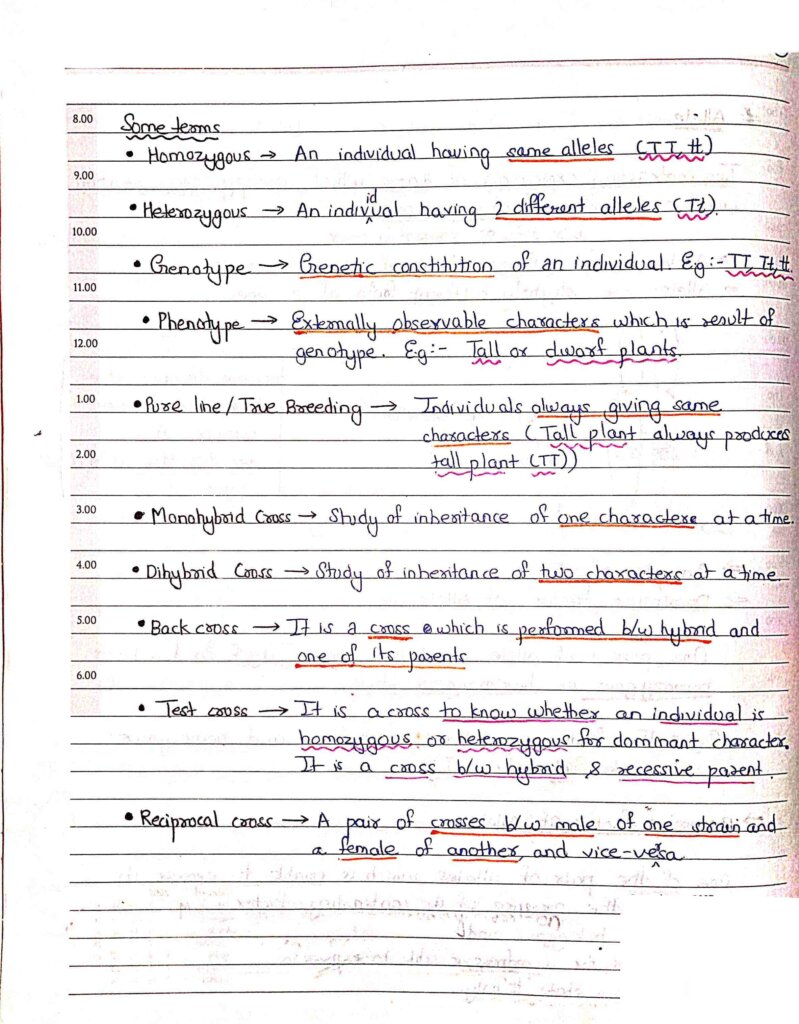 8.00
Some terms
• Homozygous → An individual having same alleles (TT, tt)
9.00
• Heterozygous → An individual having 2 different alleles (Tt).
10.00
• Genotype → Genetic constitution of an individual. Eg:- TT, Tt, tt.
11.00
• Phenotype → Externally observable characters which is result of
12.00
genotype. Eg:- Tall or dwarf plants.
1.00
• Pure line / True Breeding → Individuals always giving same
characters (Tall plant always produces
2.00
tall plant (TT))
3.00
• Monohybrid Cross → Study of inheritance of one charactere at a time.
4.00
• Dihybrid Cross → Study of inheritance of two characters at a time.
5.00
• Back cross → It is a cross which is performed b/w hybrid and
one of its parents
6.00
• Test cross → It is a cross to know whether an individual is
homozygous or heterozygous for dominant character.
It is a cross b/w hybrid & recessive parent.
• Reciprocal cross → A pair of crosses b/w male of one strain and
a female of another, and vice-versa